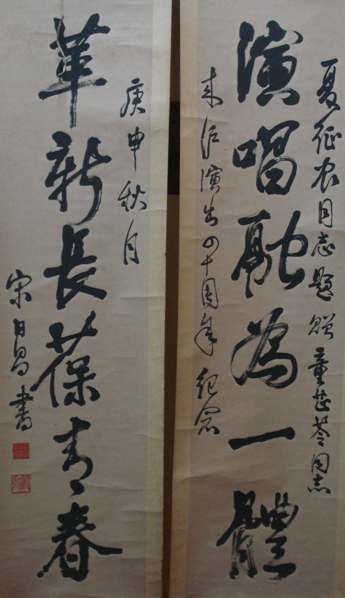 夏征农同志题赠童芷苓同志
演唱融為一體
来沪演出四十周年纪念
庚申秋月
革新長葆青春
宋日昌書